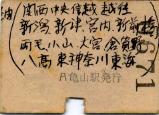 関西中央信越越後
新潟新津宮内新前
両毛小山大宮倉賀野
八高東神奈川東海
A亀山駅発行
1671